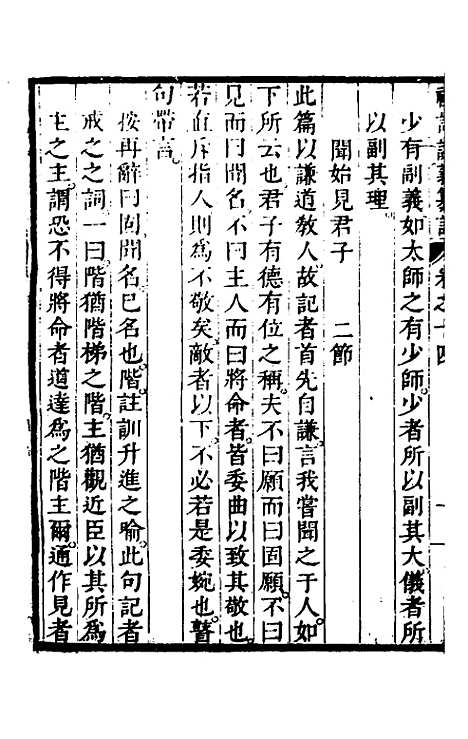 少有副義如太師之有少師少者所以副其大儀者所
以副其理
聞始見君子　二節
此篇以謙道敎人故記者首先自謙言我嘗聞之于人如
下所云也君子有德有位之稱夫不曰願而曰固願不曰
見而曰聞名不曰主人而曰將命者皆委曲以致其敬也
若直斥指人則爲不敬矣敵者以下不必若是委婉也瞽
句帶言
按再辭曰固聞名巳名也階註訓升進之喻此句記者
戒之之詞一曰階猶階梯之階主猶觀近臣以其所爲
主之主謂恐不得將命者道達爲之階主爾通作見者